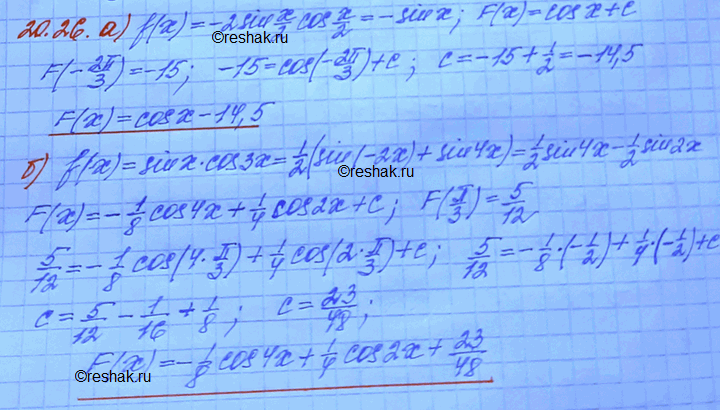 20.26. а) f(x) = -2sin x/2 cos x/2 = -sin x; F(x) = cos x + c
©reshak.ru
F(-2π/3) = -15; -15 = cos(-2π/3) + c; c = -15 + 1/2 = -14,5
F(x) = cos x - 14,5
©reshak.ru
б) f(x) = sin x · cos 3x = 1/2 (sin(-2x) + sin 4x) = 1/2 sin 4x - 1/2 sin 2x
©reshak.ru
F(x) = -1/8 cos 4x + 1/4 cos 2x + c; F(π/3) = 5/12
5/12 = -1/8 cos(4·π/3) + 1/4 cos(2·π/3) + c; 5/12 = -1/8·(-1/2) + 1/4·(-1/2) + c
c = 5/12 - 1/16 + 1/8; c = 23/48;
F(x) = -1/8 cos 4x + 1/4 cos 2x + 23/48
©reshak.ru